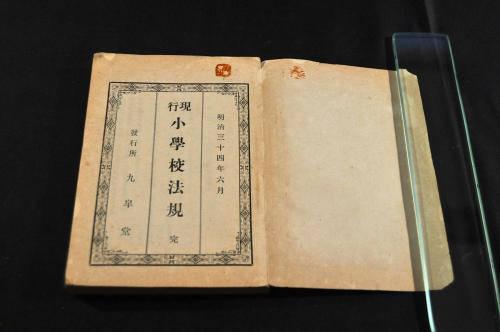 明治三十四年六月
現行 小學校法規 完
發行所 九皐堂